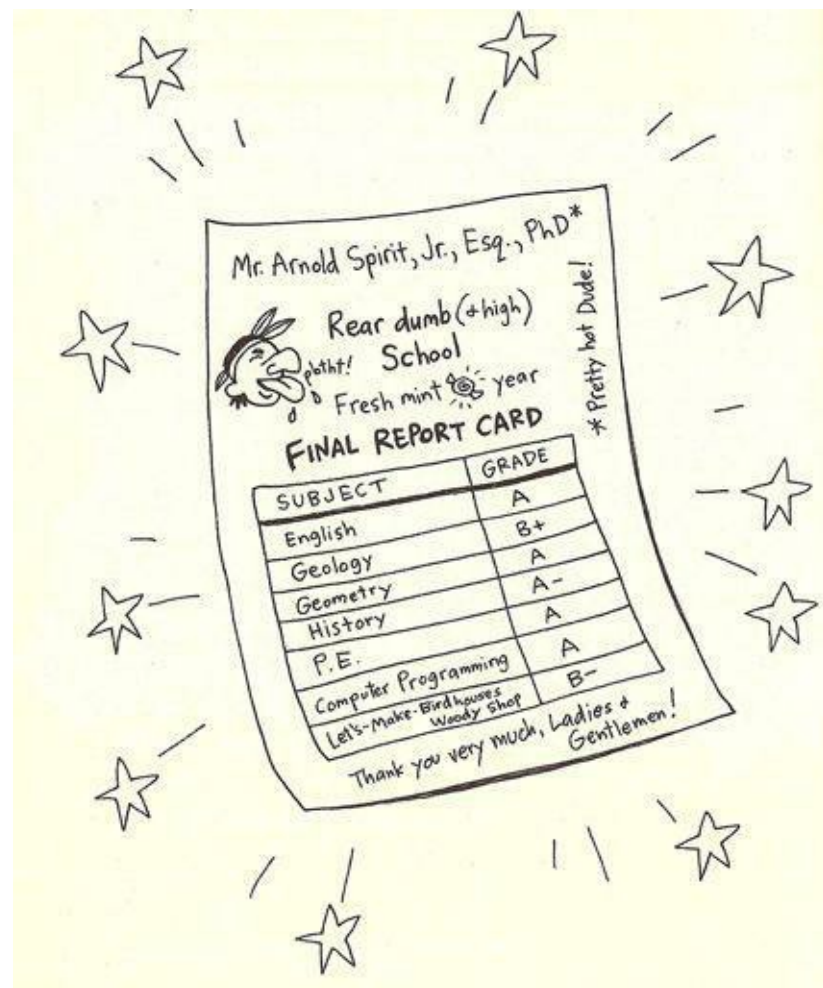 Mr. Arnold Spirit, Jr., Esq., PhD*
Rear dumb (& high)
School
pbtht!
Fresh mint year
* Pretty hot Dude!
FINAL REPORT CARD
SUBJECT GRADE
English A
Geology B+
Geometry A
History A-
P.E. A
Computer Programming A
Let's-Make-Birdhouses
Woody Shop B-
Thank you very much, Ladies &
Gentlemen!